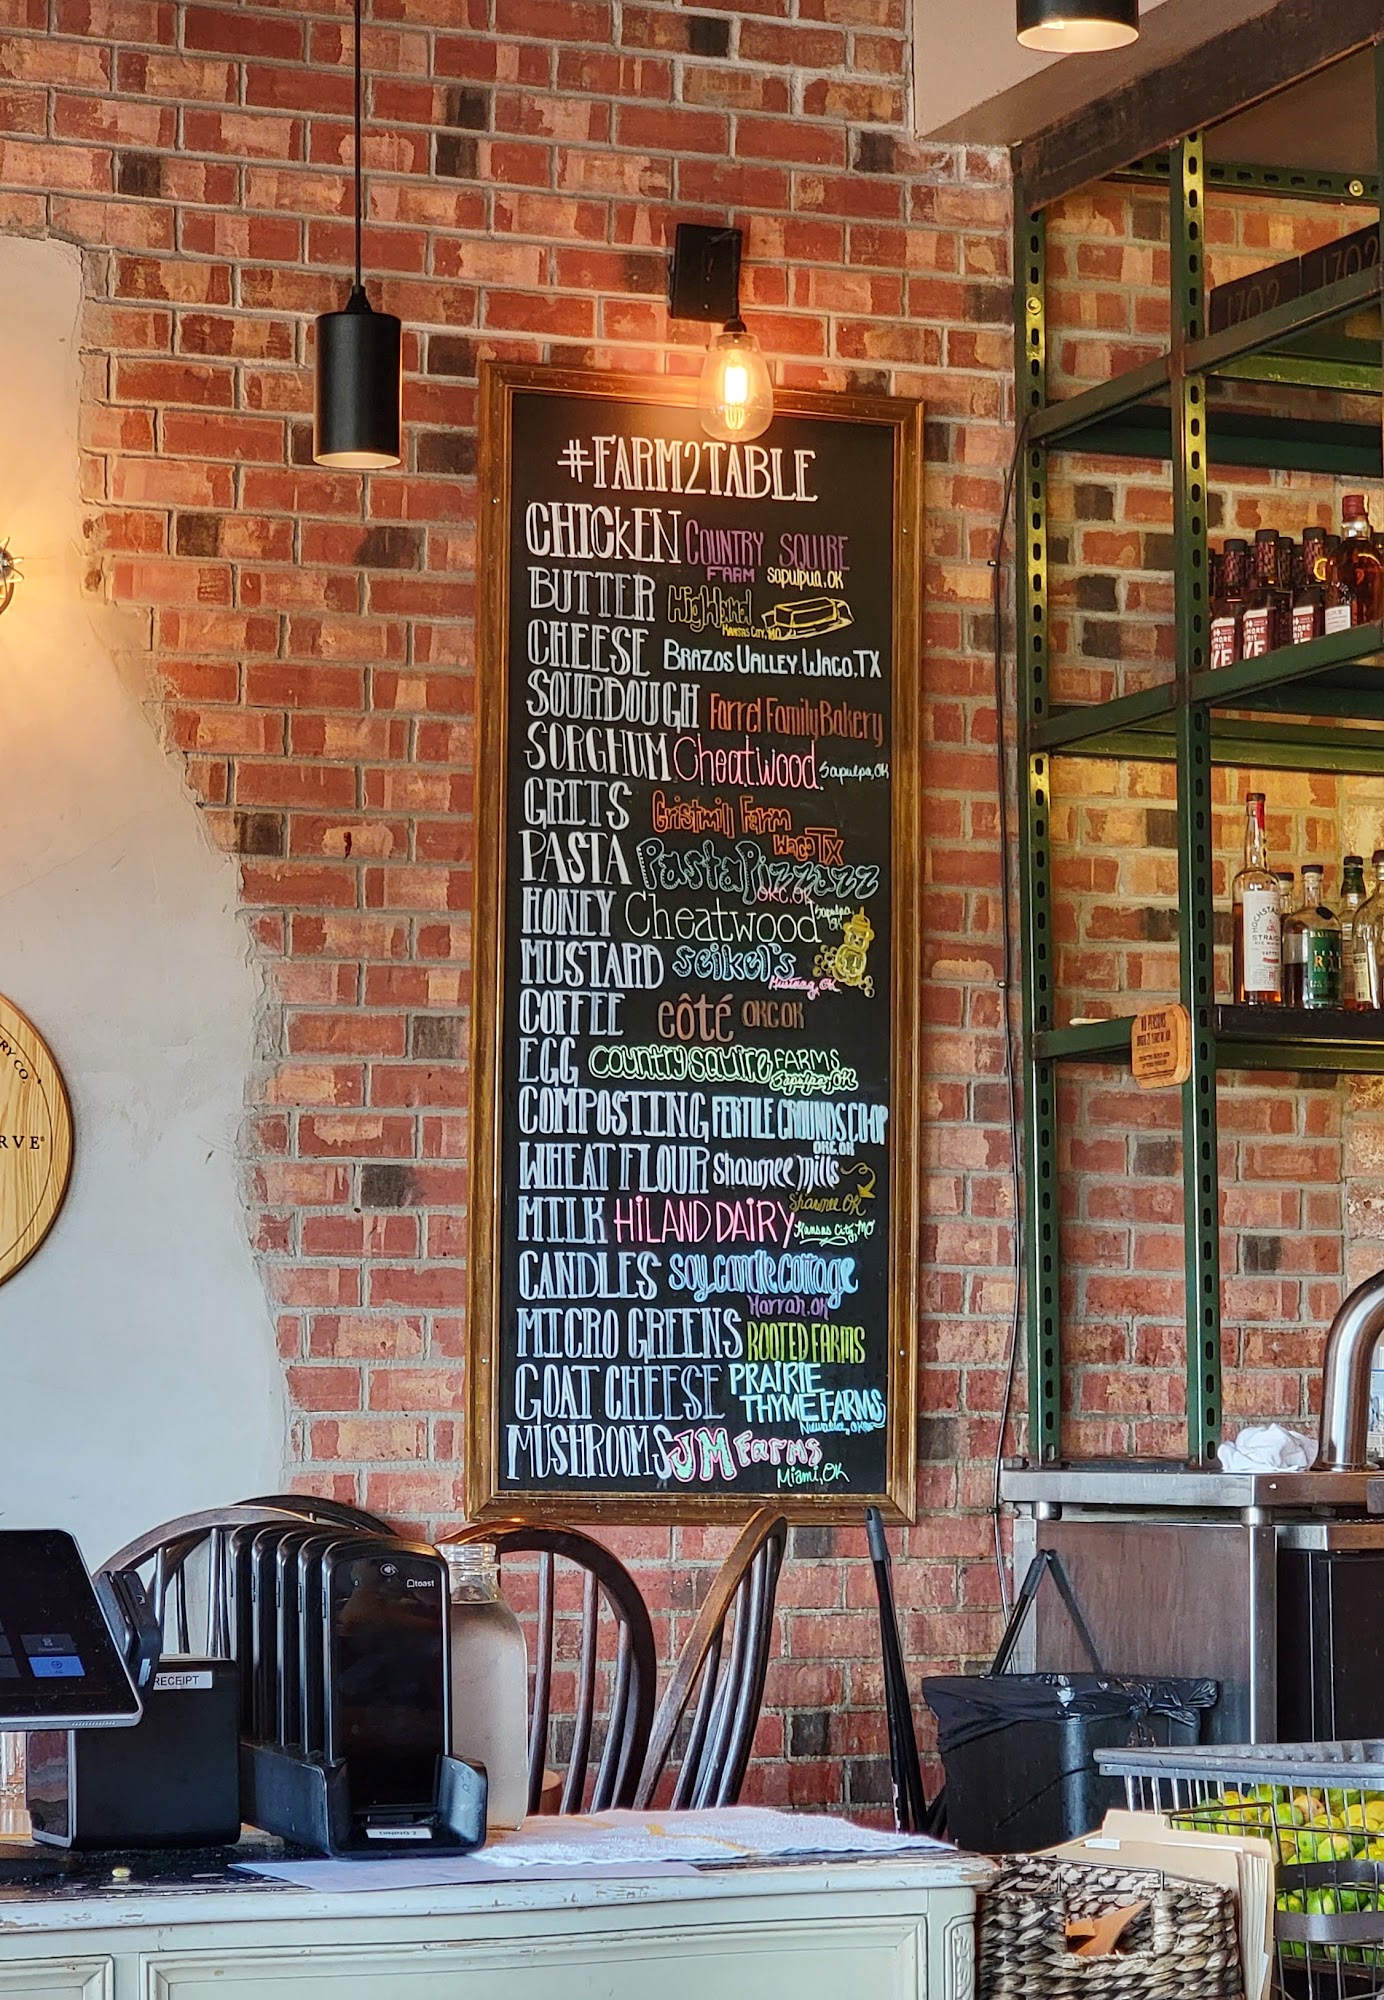 #FARM2TABLE
CHICKEN COUNTRY SQUIRE
FARM SAPULPUA, OK
BUTTER Highland
KANSAS CITY, MO
CHEESE BRAZOS VALLEY. WACO, TX
SOURDOUGH Farrel Family Bakery
SORGHUM Cheatwood. Sapulpa, OK
GRITS Gristmill Farm
Waco TX
PASTA Pasta Pizzazz
OKC. OK
HONEY Cheatwood Sapulpa, OK
MUSTARD Seikel's
Mustang, OK
COFFEE eôté OKC OK
EGG COUNTRY SQUIRE FARMS
Sapulpa, OK
COMPOSTING FERTILE GROUNDS CO-OP
OKC. OK
WHEAT FLOUR Shawnee Mills
Shawnee OK
MILK HILAND DAIRY Kansas City, MO
CANDLES Soy candle cottage
Harrah, OK
MICRO GREENS ROOTED FARMS
GOAT CHEESE PRAIRIE
THYME FARMS
MUSHROOMS JM Farms
Miami, OK
1702 1702
RY CO.
RVE
toast
RECEIPT
DINING 2
NO PERSONS